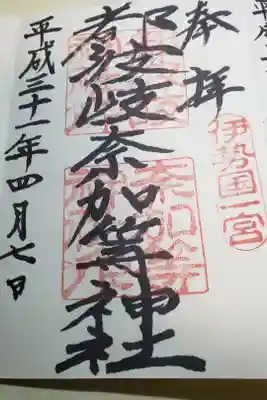 平成
伊勢国一宮
奉拝
都波岐奈加等神社
平成三十一年四月七日